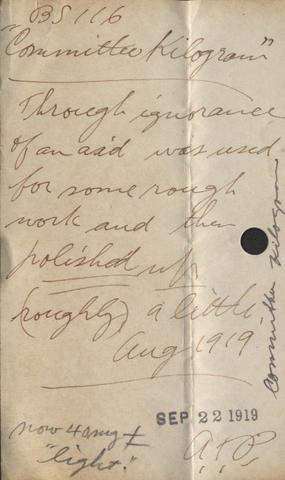 BS 116
"Committee Kilogram"
Through ignorance
of an aid was used
for some rough
work and then
polished up
(roughly) a little
Aug 1919
SEP 22 1919
now 4 mg ±
"light."
Committee Kilogram